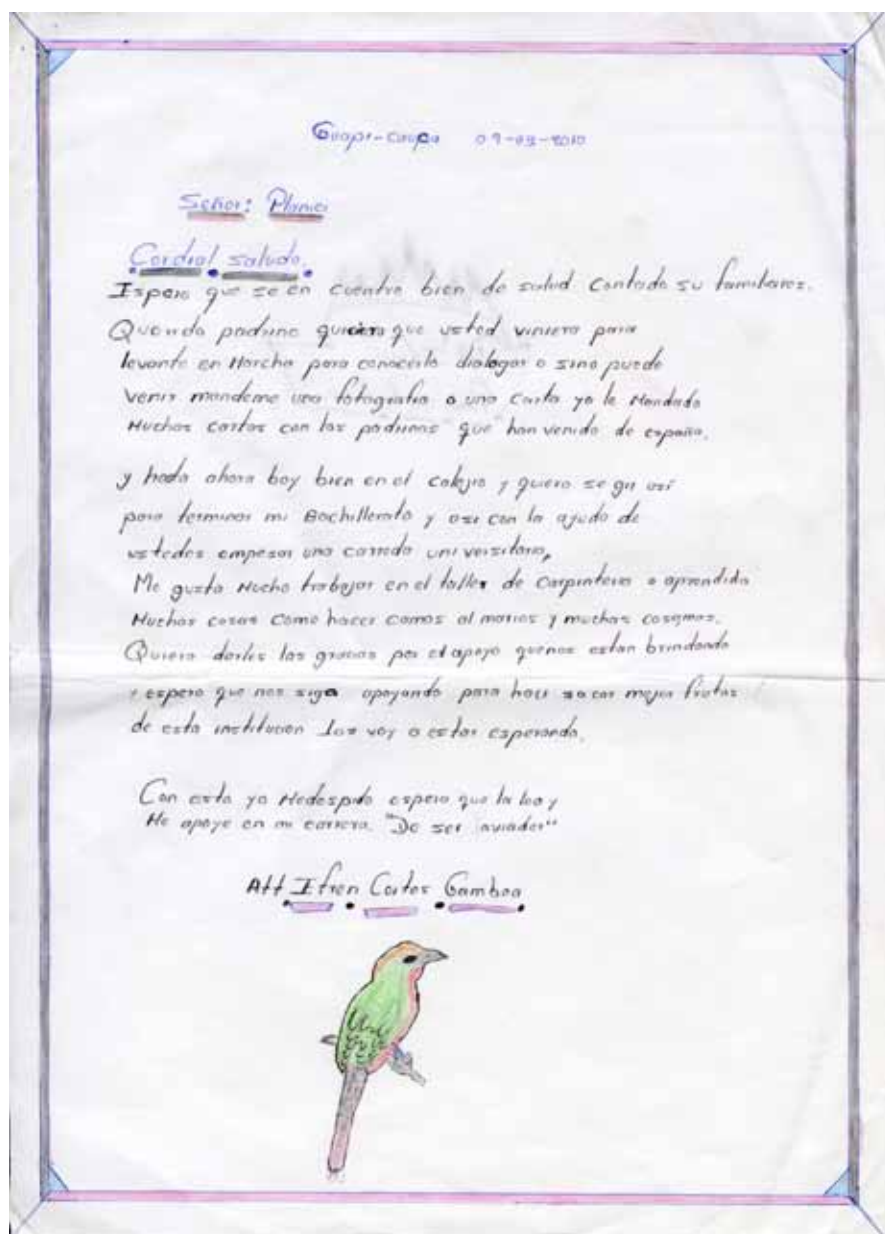 Guapi-Cauca 09-03-2010
Señor: Planici
Cordial saludo.
Ispero que se en cuentre bien de salud Contado su familiares.
Querido padrino quisiera que usted viniera para
levante en Marcha para conocerlo dialogar o sino puede
venir mandeme una fotografia o una Carta yo le Mandado
Muchas cartas con los padrinos que han venido de españa.
y hasta ahora boy bien en el colejio y quiero se gir asi
para terminar mi Bachillerato y asi con la ayuda de
ustedes empesar una carreda universitaria,
Me gusta Mucho trabajar en el taller de Carpinteria o aprendido
Muchas cosas Como hacer camas al marios y muchas cosqmas.
Quiero darles las gracias por el apoyo quenos estan brindando
y espero que nos siga apoyando para haci sacar mejor frutos
de esta institucion los voy a estar esperando.
Con esto ya Medespido espero que la lea y
Me apoye en mi carrera. "De ser aviador"
Att Ifren Cortes Gamboa